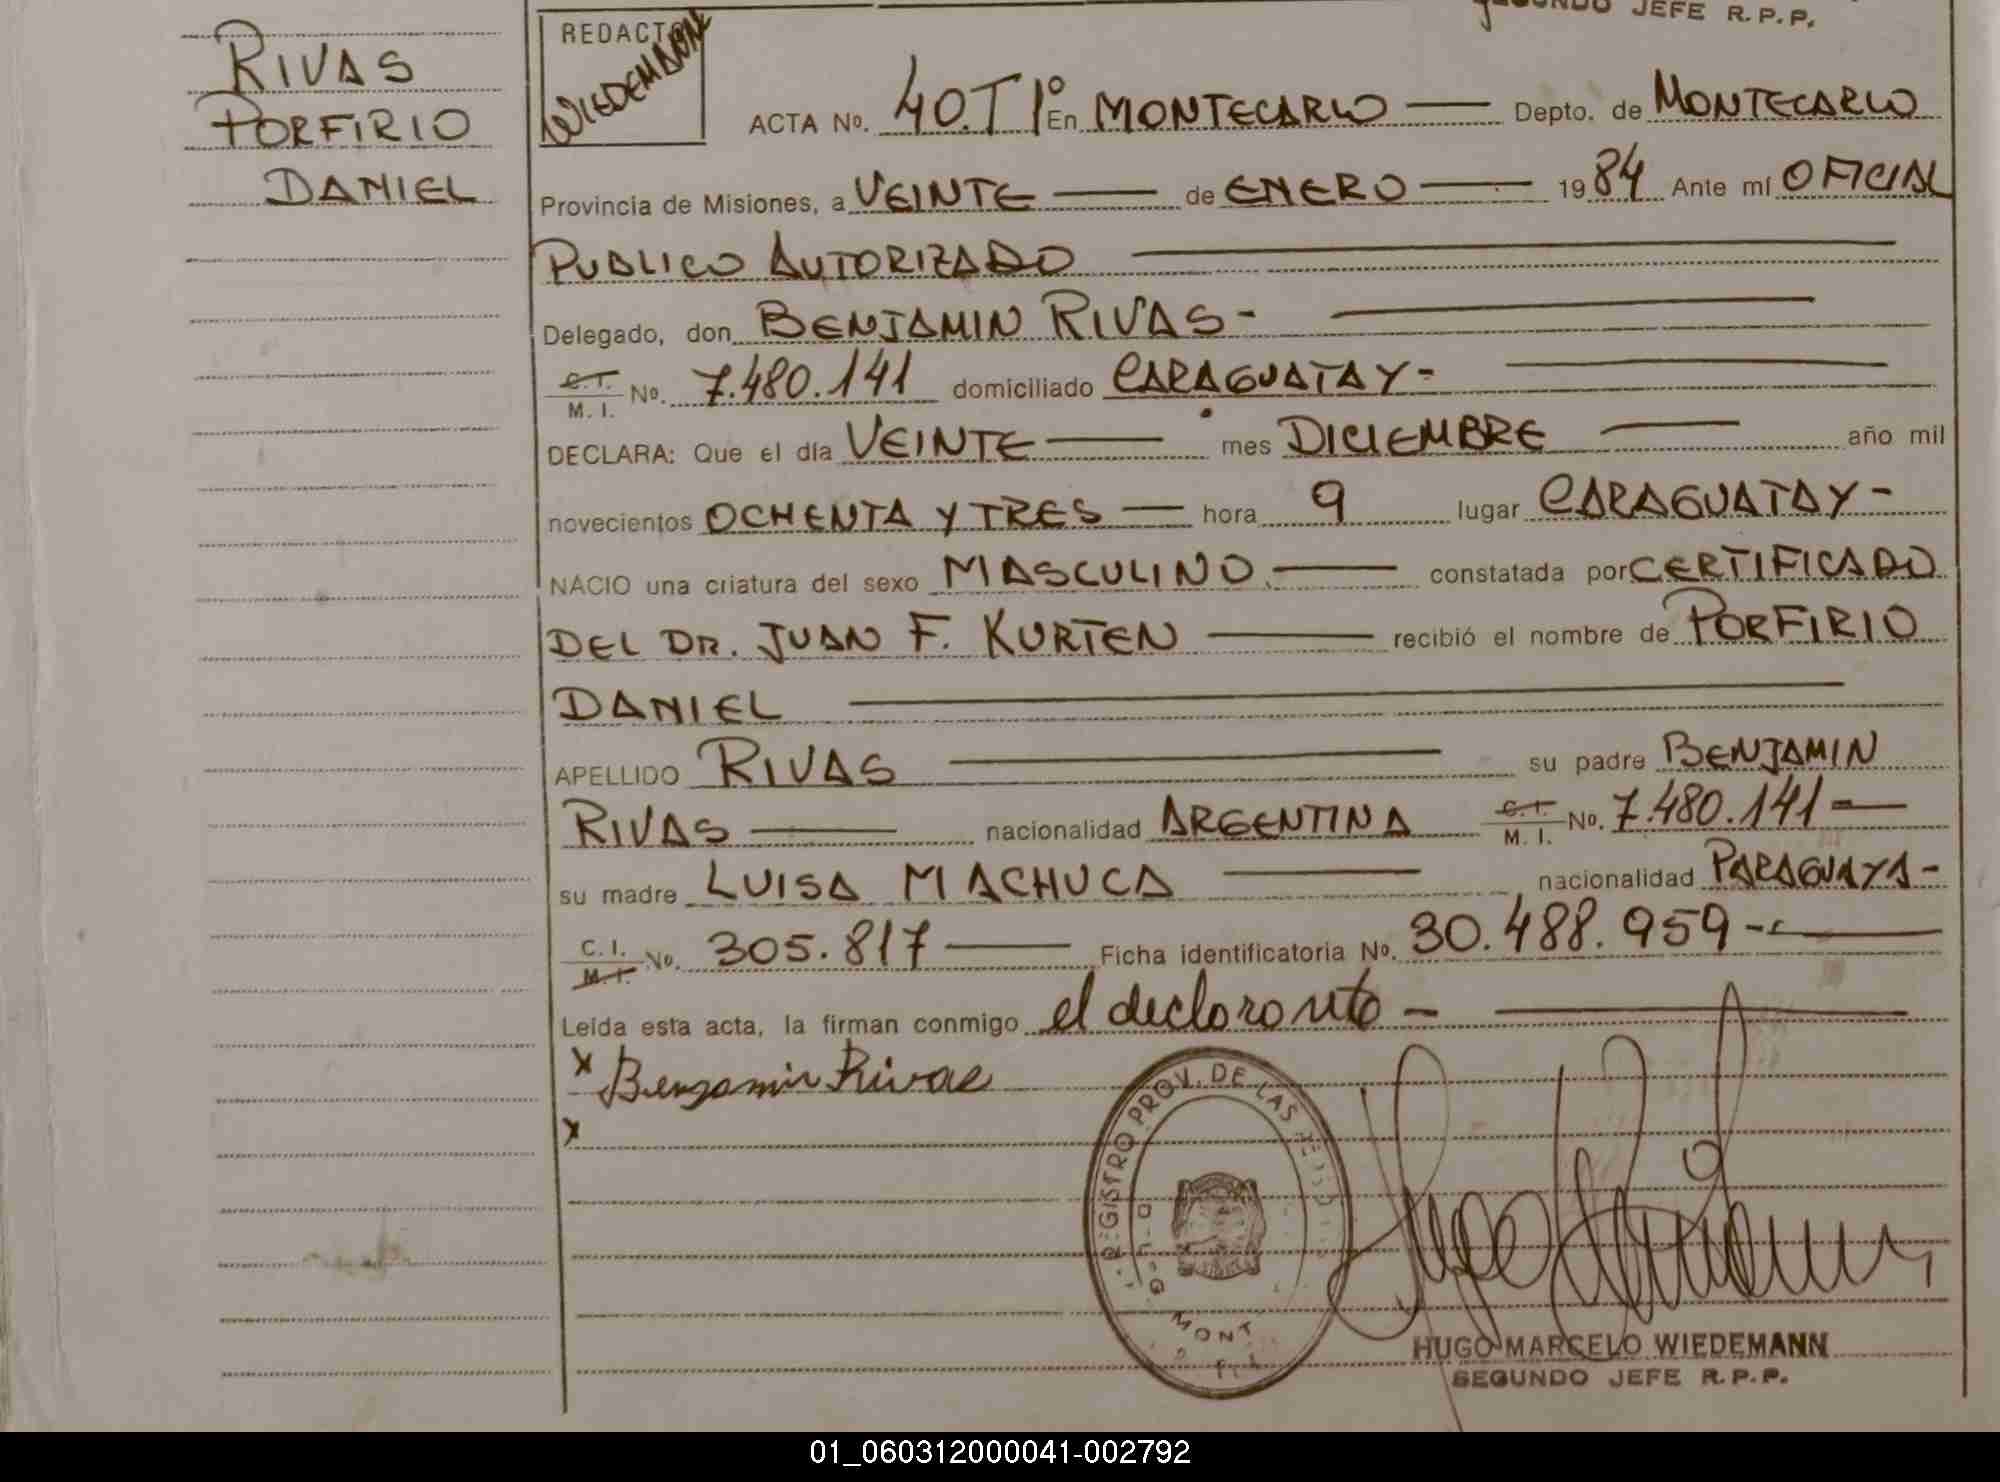 SEGUNDO JEFE R.P.P.
RIVAS
PORFIRIO
DANIEL
REDACTO
WIEDEMANN
ACTA No. 40.T 1º En MONTECARLO Depto. de MONTECARLO
Provincia de Misiones, a VEINTE de ENERO 1984 Ante mí OFICIAL
PUBLICO AUTORIZADO
Delegado, don BENJAMIN RIVAS-
C.I. M.I. No. 7.480.141 domiciliado CARAGUATAY-
DECLARA: Que el día VEINTE mes DICIEMBRE año mil
novecientos OCHENTA Y TRES hora 9 lugar CARAGUATAY-
NACIO una criatura del sexo MASCULINO constatada por CERTIFICADO
DEL DR. JUAN F. KURTEN recibió el nombre de PORFIRIO
DANIEL
APELLIDO RIVAS su padre BENJAMIN
RIVAS nacionalidad ARGENTINA C.I. M.I. No. 7.480.141-
su madre LUISA MACHUCA nacionalidad PARAGUAYA-
C.I. M.I. No. 305.817 Ficha identificatoria No. 30.488.959-
Leída esta acta, la firman conmigo el declarante-
x Benjamin Rivas
x
REGISTRO PROV. DE LAS
MONT
HUGO MARCELO WIEDEMANN
SEGUNDO JEFE R.P.P.
01_060312000041-002792